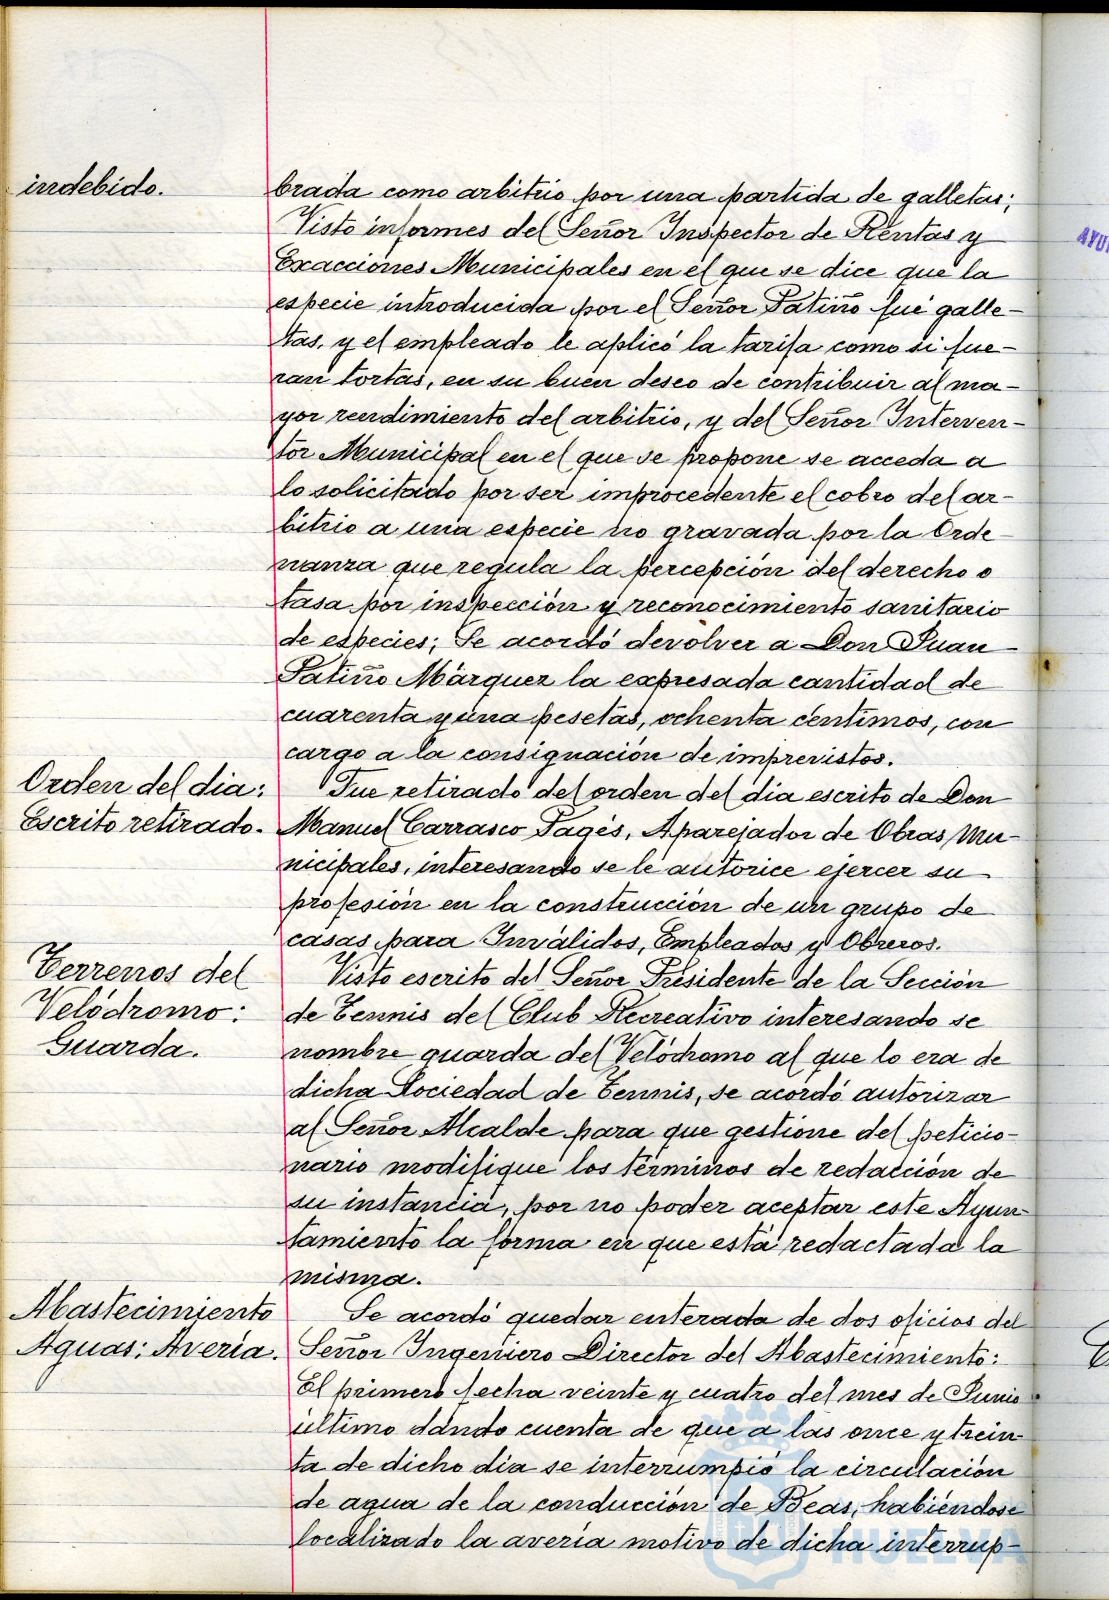 indebido.
brada como arbitrio por una partida de galletas;
Visto informes del Señor Inspector de Rentas y
Exacciones Municipales en el que se dice que la
especie introducida por el Señor Patiño fué galle-
tas, y el empleado le aplicó la tarifa como si fue-
ran tortas, en su buen deseo de contribuir al ma-
yor rendimiento del arbitrio, y del Señor Interven-
tor Municipal en el que se propone se acceda a
lo solicitado por ser improcedente el cobro del ar-
bitrio a una especie no gravada por la Orde-
nanza que regula la percepción del derecho o
tasa por inspección y reconocimiento sanitario
de especies; Se acordó devolver a Don Juan
Patiño Márquez la expresada cantidad de
cuarenta y una pesetas, ochenta centimos, con
cargo a la consignación de imprevistos.
Orden del dia:
Escrito retirado.
Fue retirado del orden del dia escrito de Don
Manuel Carrasco Pagés, Aparejador de Obras Mu-
nicipales, interesando se le autorice ejercer su
profesión en la construcción de un grupo de
casas para Inválidos, Empleados y Obreros.
Terrenos del
Velódromo:
Guarda.
Visto escrito del Señor Presidente de la Sección
de Tennis del Club Recreativo interesando se
nombre guarda del Velódromo al que lo era de
dicha Sociedad de Tennis, se acordó autorizar
al Señor Alcalde para que gestione del peticio-
nario modifique los términos de redacción de
su instancia, por no poder aceptar este Ayun-
tamiento la forma en que está redactada la
misma.
Abastecimiento
Aguas: Avería.
Se acordó quedar enterada de dos oficios del
Señor Ingeniero Director del Abastecimiento:
El primero fecha veinte y cuatro del mes de Junio
último dando cuenta de que a las once y trein-
ta de dicho dia se interrumpió la circulación
de agua de la conducción de Beas, habiéndose
localizado la avería motivo de dicha interrup-
HUELVA